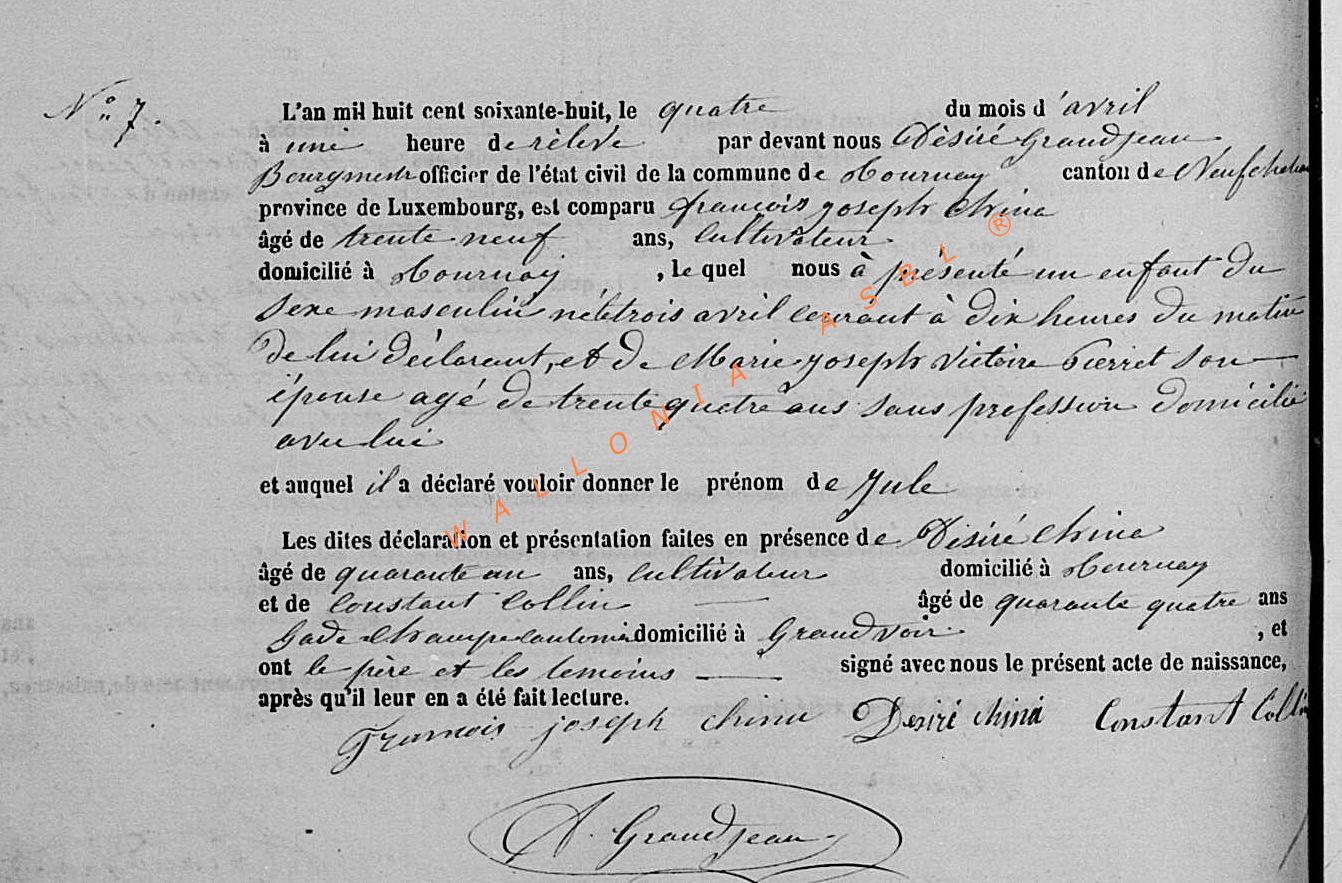 N° 7.
L'an mil huit cent soixante-huit, le quatre du mois d'avril
à une heure de rélevé par devant nous Désiré Grandjean
Bourgmestr officier de l'état civil de la commune de Tournay canton de Neufchateau
province de Luxembourg, est comparu françois joseph China
âgé de trente neuf ans, Cultivateur
domicilié à Tournay, le quel nous à présenté un enfant du
sexe masculin né le trois avril courant à dix heures du matin
de lui déclarant, et de Marie joseph Victoire Pierret son
épouse agé de trente quatre ans sans profession domicilié
avec lui
et auquel il a déclaré vouloir donner le prénom de Jule
Les dites déclaration et présentation faites en présence de Désiré China
âgé de quarante un ans, cultivateur domicilié à Tournay
et de Constant Collin âgé de quarante quatre ans
Gade Champe domicilié à Grandvoir, et
ont le père et les temoins signé avec nous le présent acte de naissance,
après qu'il leur en a été fait lecture.
François joseph China Desiré China Constant Collin
A. Grandjean
WALLONIA ASBL ®